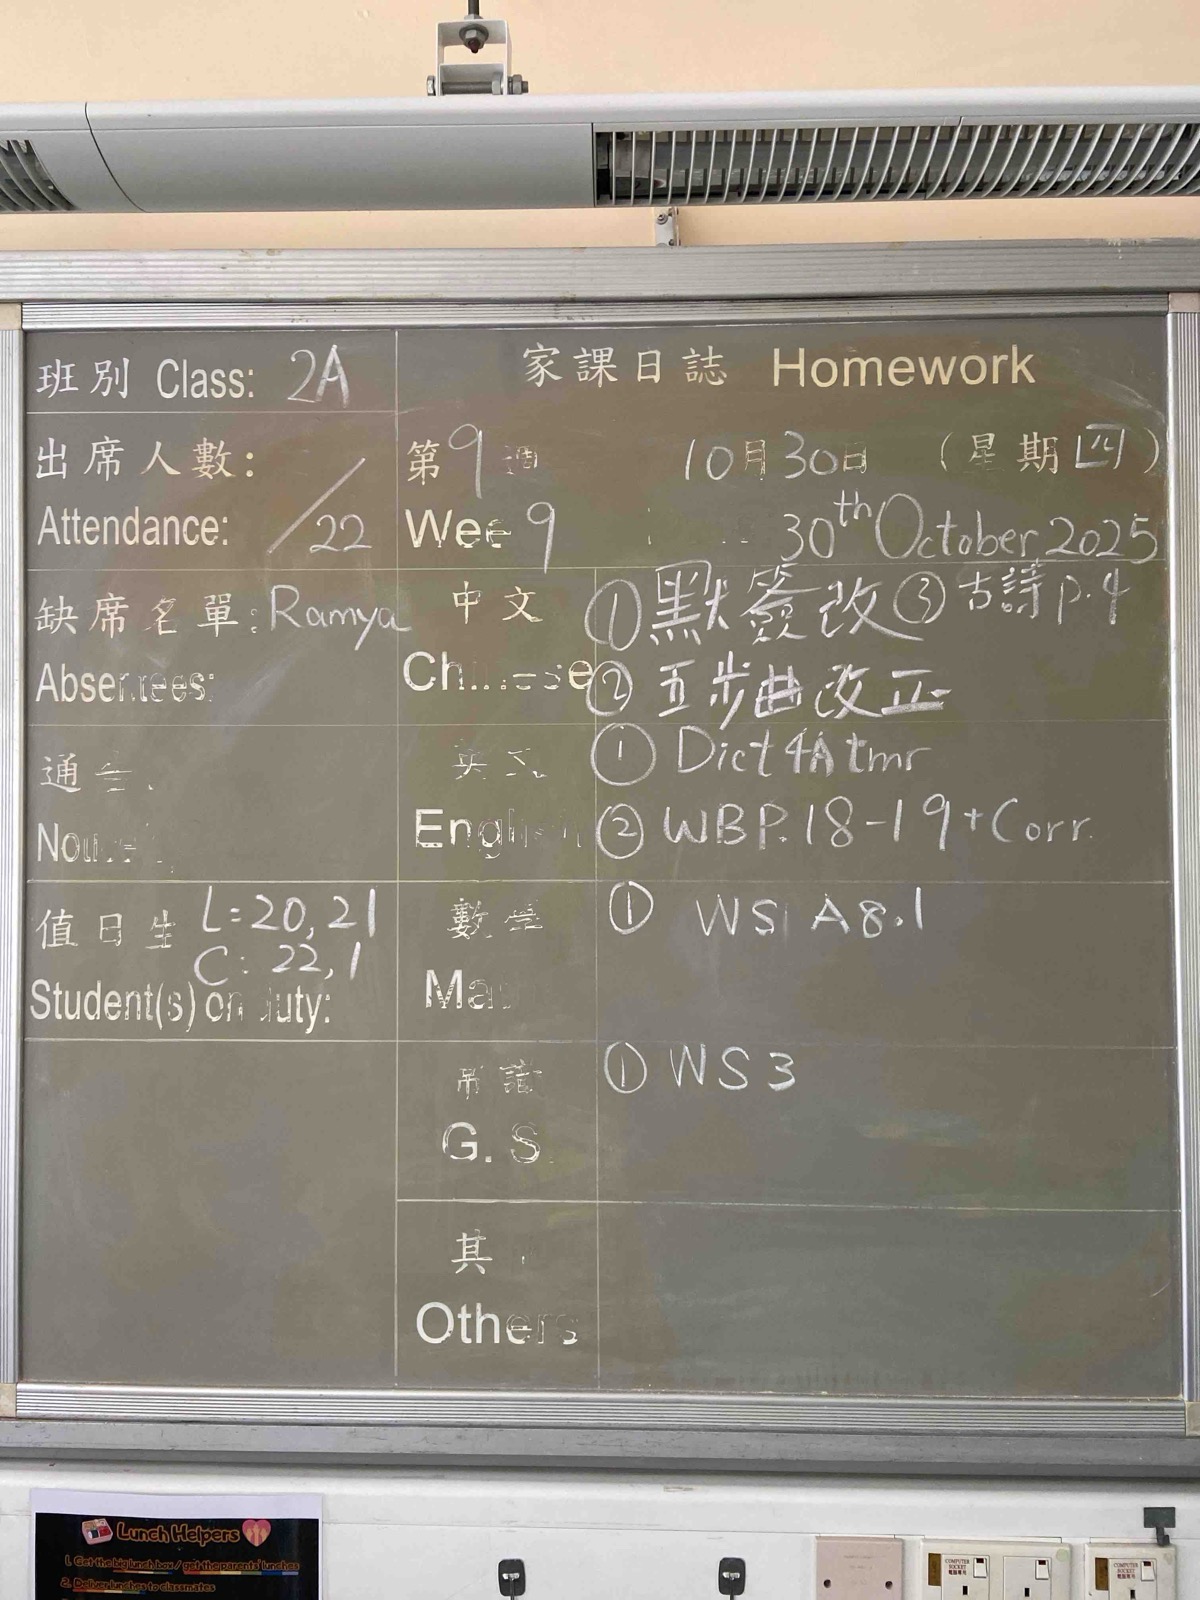 班別 Class: 2A
家課日誌 Homework
出席人數:
Attendance: /22
第9週 10月30日 (星期四)
Wee 9 30th October 2025
缺席名單: Ramya
Absentees:
中文
Chinese
① 默簽改 ③ 古詩 p.4
② 五步曲改正
通告
英文
English
① Dict 4A tmr
② WB P.18-19 + Corr.
值日生 L=20,21
C: 22,1
Student(s) on duty:
數學
Ma
① WS A8.1
常識
G. S.
① WS 3
其
Others
Lunch Helpers
1. Get the big lunch box / get the parents' lunches
2. Deliver lunches to classmates
COMPUTER SOCKET
電腦專用
COMPUTER SOCKET
電腦專用